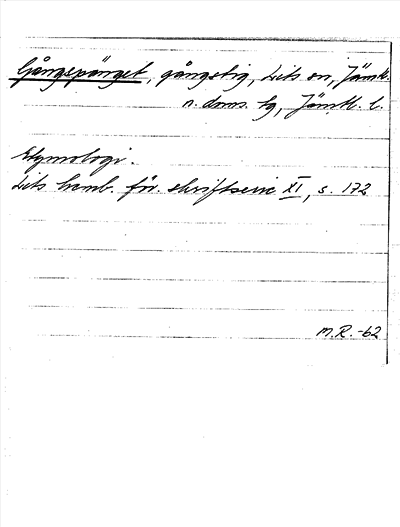 Gångspånget, gångstig, Lits sn, Jämtl.
n. doms. tg, Jämtl. l.
Etymologi.
Lits hemb. för. skriftserie XI, s. 172
M.R. -62